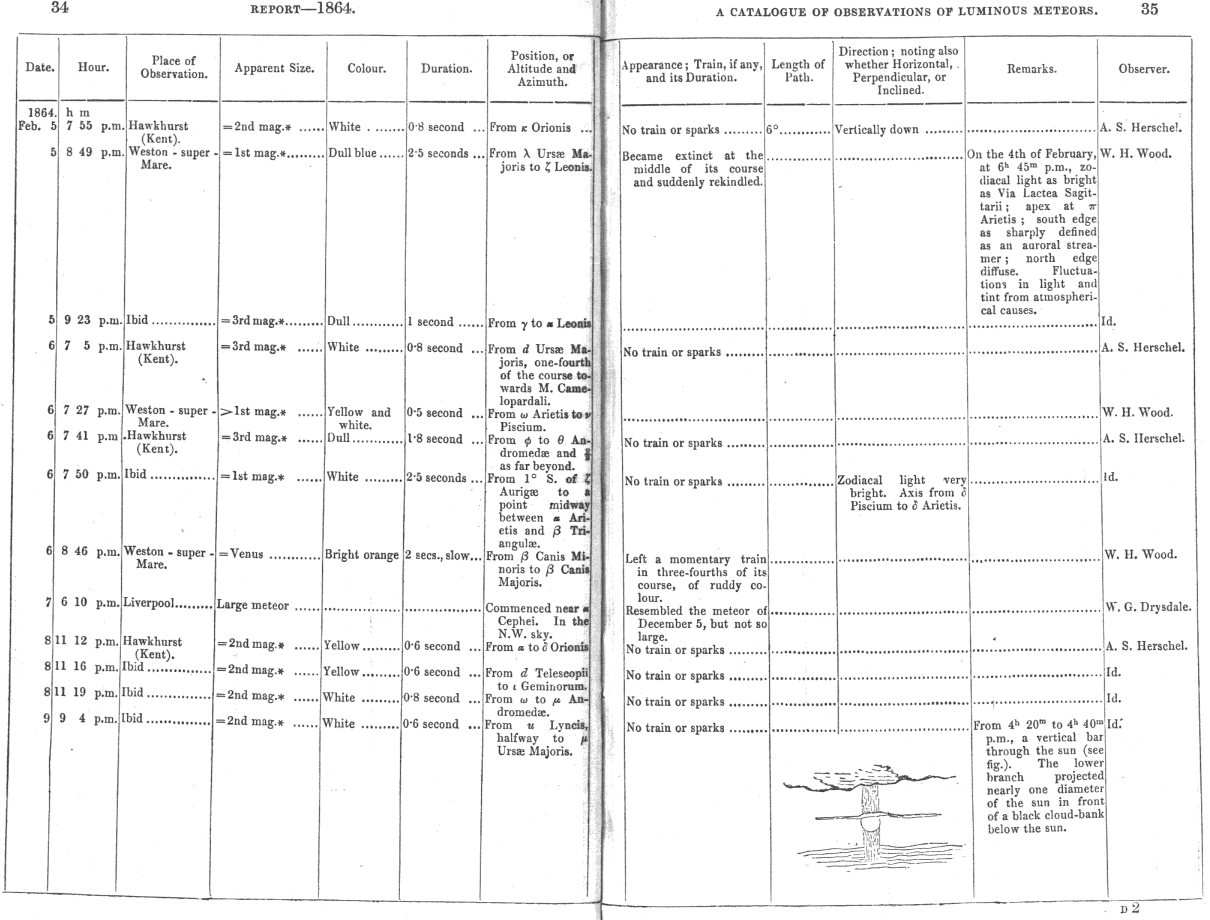 34 REPORT—1864.
Date. Hour. Place of Observation. Apparent Size. Colour. Duration. Position, or Altitude and Azimuth.
1864. h m
Feb. 5 7 55 p.m. Hawkhurst = 2nd mag.* ...... White . ...... 0·8 second ... From κ Orionis ...
(Kent).
5 8 49 p.m. Weston - super - = 1st mag.*......... Dull blue ....... 2·5 seconds ... From λ Ursæ Ma-
Mare. joris to ζ Leonis.
5 9 23 p.m. Ibid ............... = 3rd mag.*........ Dull ............ 1 second ...... From γ to α Leonis
6 7 5 p.m. Hawkhurst = 3rd mag.* ...... White ......... 0·8 second ... From d Ursæ Ma-
(Kent). joris, one-fourth
of the course to-
wards M. Came-
lopardali.
6 7 27 p.m. Weston - super - >1st mag.* ...... Yellow and 0·5 second ... From ω Arietis to ν
Mare. white. Piscium.
6 7 41 p.m. Hawkhurst = 3rd mag.* ...... Dull ............ 1·8 second ... From φ to θ An-
(Kent). dromedæ and
as far beyond.
6 7 50 p.m. Ibid ............... = 1st mag.* ...... White ......... 2·5 seconds ... From 1° S. of ζ
Aurigæ to a
point midway
between α Ari-
etis and β Tri-
angulæ.
6 8 46 p.m. Weston - super - = Venus ............ Bright orange 2 secs., slow... From β Canis Mi-
Mare. noris to β Canis
Majoris.
7 6 10 p.m. Liverpool......... Large meteor ... ............... ............... Commenced near α
Cephei. In the
N.W. sky.
8 11 12 p.m. Hawkhurst = 2nd mag.* ...... Yellow ......... 0·6 second ... From α to δ Orionis
(Kent).
8 11 16 p.m. Ibid ............... = 2nd mag.* ...... Yellow ......... 0·6 second ... From d Telescopii
to ι Geminorum.
8 11 19 p.m. Ibid ............... = 2nd mag.* ...... White ......... 0·8 second ... From ω to μ An-
dromedæ.
9 9 4 p.m. Ibid ............... = 2nd mag.* ...... White ......... 0·6 second ... From u Lyncis,
halfway to μ
Ursæ Majoris.
A CATALOGUE OF OBSERVATIONS OF LUMINOUS METEORS. 35
Appearance; Train, if any, and its Duration. Length of Path. Direction; noting also whether Horizontal, Perpendicular, or Inclined. Remarks. Observer.
No train or sparks ......... 6°......... Vertically down ......... ........................ A. S. Herschel.
Became extinct at the ............ ........................ On the 4th of February, W. H. Wood.
middle of its course at 6h 45m p.m., zo-
and suddenly rekindled. diacal light as bright
as Via Lactea Sagit-
tarii; apex at π
Arietis; south edge
as sharply defined
as an auroral strea-
mer; north edge
diffuse. Fluctua-
tions in light and
tint from atmospheri-
cal causes.
........................ ............ ........................ ........................ Id.
No train or sparks ......... ............ ........................ ........................ A. S. Herschel.
........................ ............ ........................ ........................ W. H. Wood.
No train or sparks ......... ............ ........................ ........................ A. S. Herschel.
No train or sparks ......... ............ Zodiacal light very ........................ Id.
bright. Axis from δ
Piscium to δ Arietis.
Left a momentary train ............ ........................ ........................ W. H. Wood.
in three-fourths of its
course, of ruddy co-
lour.
Resembled the meteor of ............ ........................ ........................ W. G. Drysdale.
December 5, but not so
large.
No train or sparks ......... ............ ........................ ........................ A. S. Herschel.
No train or sparks ......... ............ ........................ ........................ Id.
No train or sparks ......... ............ ........................ ........................ Id.
No train or sparks ......... ............ ........................ From 4h 20m to 4h 40m Id.
p.m., a vertical bar
through the sun (see
fig.). The lower
branch projected
nearly one diameter
of the sun in front
of a black cloud-bank
below the sun.
D 2